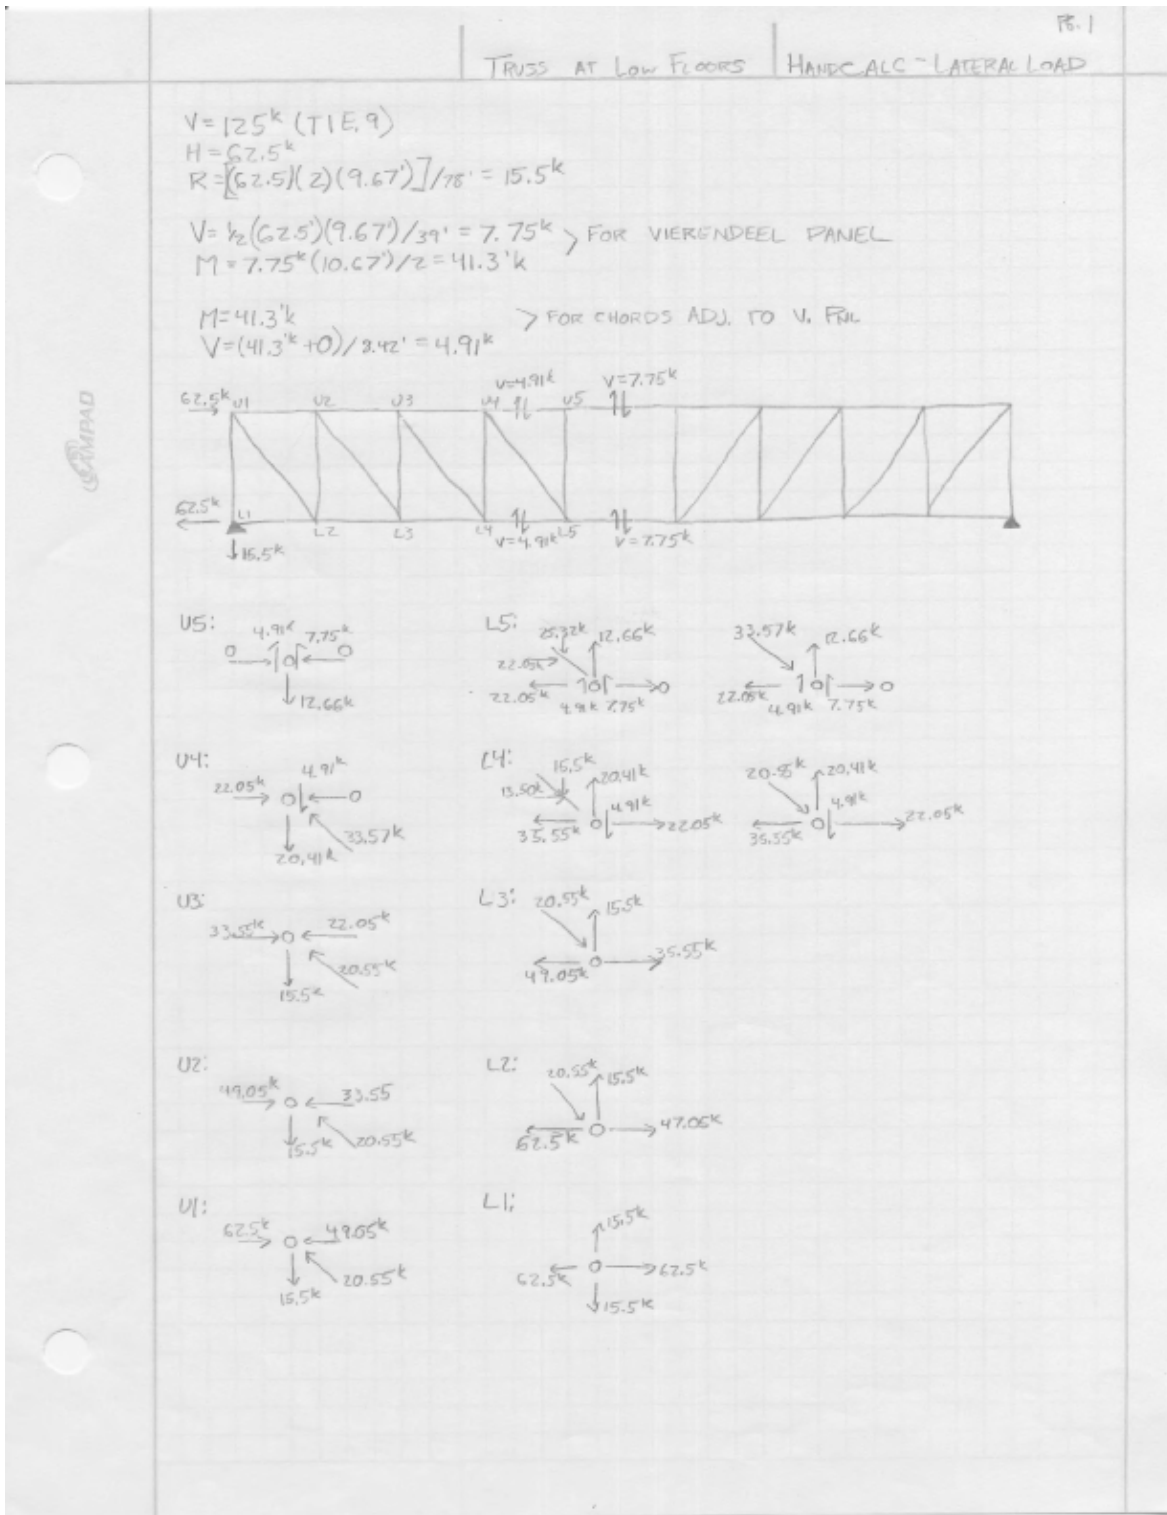 PG. 1
TRUSS AT LOW FLOORS HANDCALC - LATERAL LOAD
V = 125k (T1E.9)
H = 62.5k
R = [(62.5)(2)(9.67')]/78' = 15.5k
V = 1/2(62.5')(9.67')/39' = 7.75k > FOR VIERENDEEL PANEL
M = 7.75k(10.67')/2 = 41.3'k
M = 41.3'k > FOR CHORDS ADJ. TO V. PNL
V = (41.3'k + 0)/8.42' = 4.91k
CAMPAD
V=4.91k V=7.75k
62.5k U1 U2 U3 U4 U5
62.5k L1 L2 L3 L4 V=4.91k L5 V=7.75k
15.5k
U5: 4.91k 7.75k
0 0
12.66k
L5: 25.32k 12.66k
22.05k
22.05k 0
4.91k 7.75k
33.57k 12.66k
22.05k 0
4.91k 7.75k
U4: 4.91k
22.05k 0
33.57k
20.41k
L4: 15.5k 20.41k
13.50k 4.91k
35.55k 22.05k
20.5k 20.41k
4.91k
35.55k 22.05k
U3:
33.55k 22.05k
20.55k
15.5k
L3: 20.55k 15.5k
49.05k 35.55k
U2:
49.05k 33.55
15.5k 20.55k
L2: 20.55k 15.5k
62.5k 47.05k
U1:
62.5k 49.05k
20.55k
15.5k
L1:
15.5k
62.5k 62.5k
15.5k